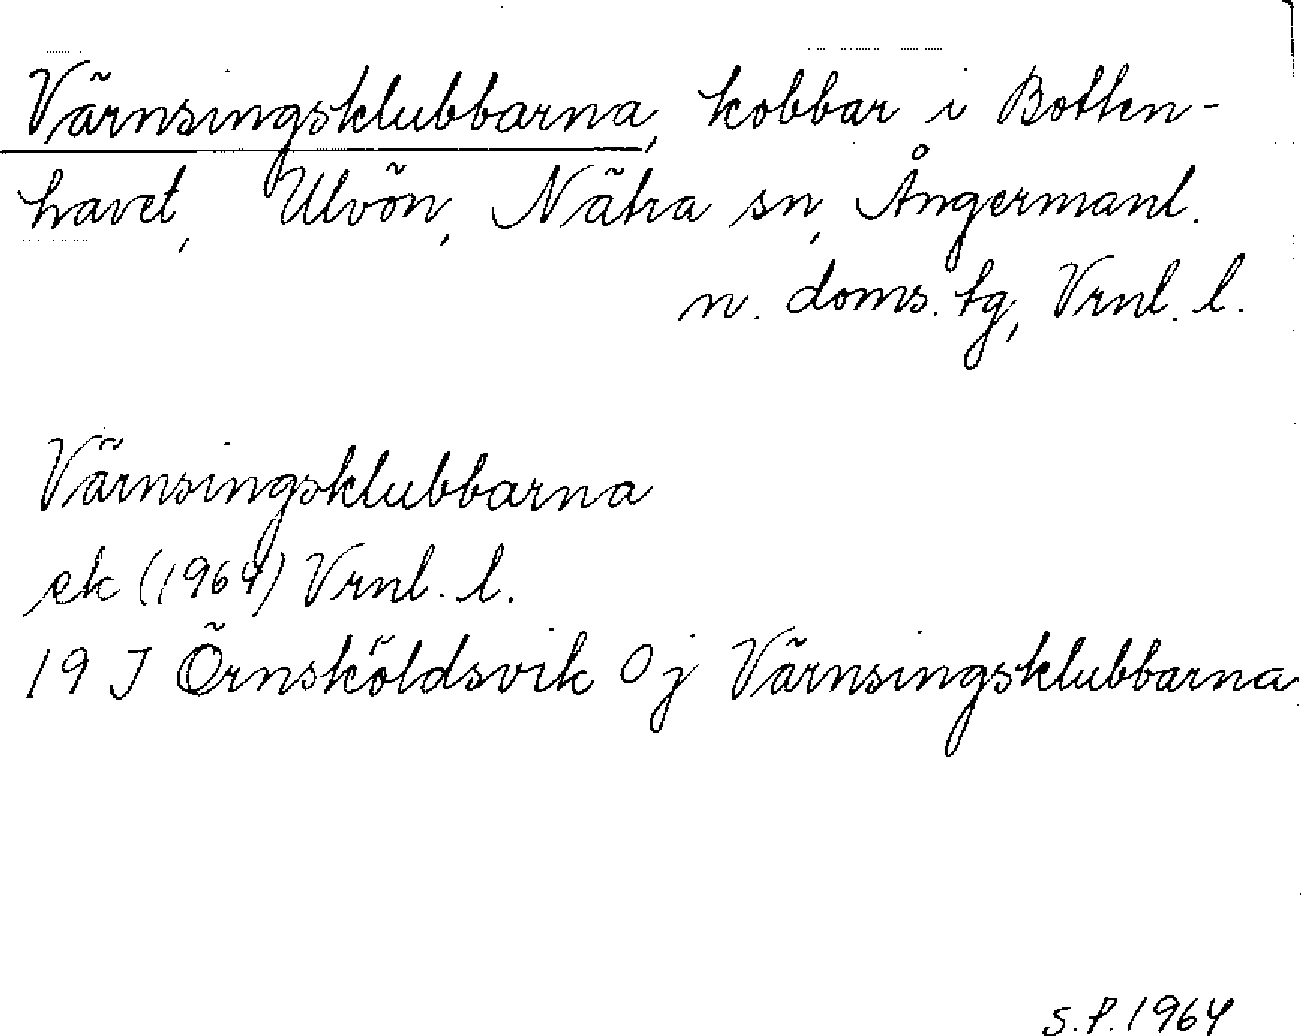 Värnsingsklubbarna, kobbar i Botten-
havet, Ulvön, Nätra sn, Ångermanl.
n. doms. tg, Vrnl. l.
Värnsingsklubbarna
ek (1964) Vrnl. l.
19 J Örnsköldsvik 0 j Värnsingsklubbarna
S.P. 1964